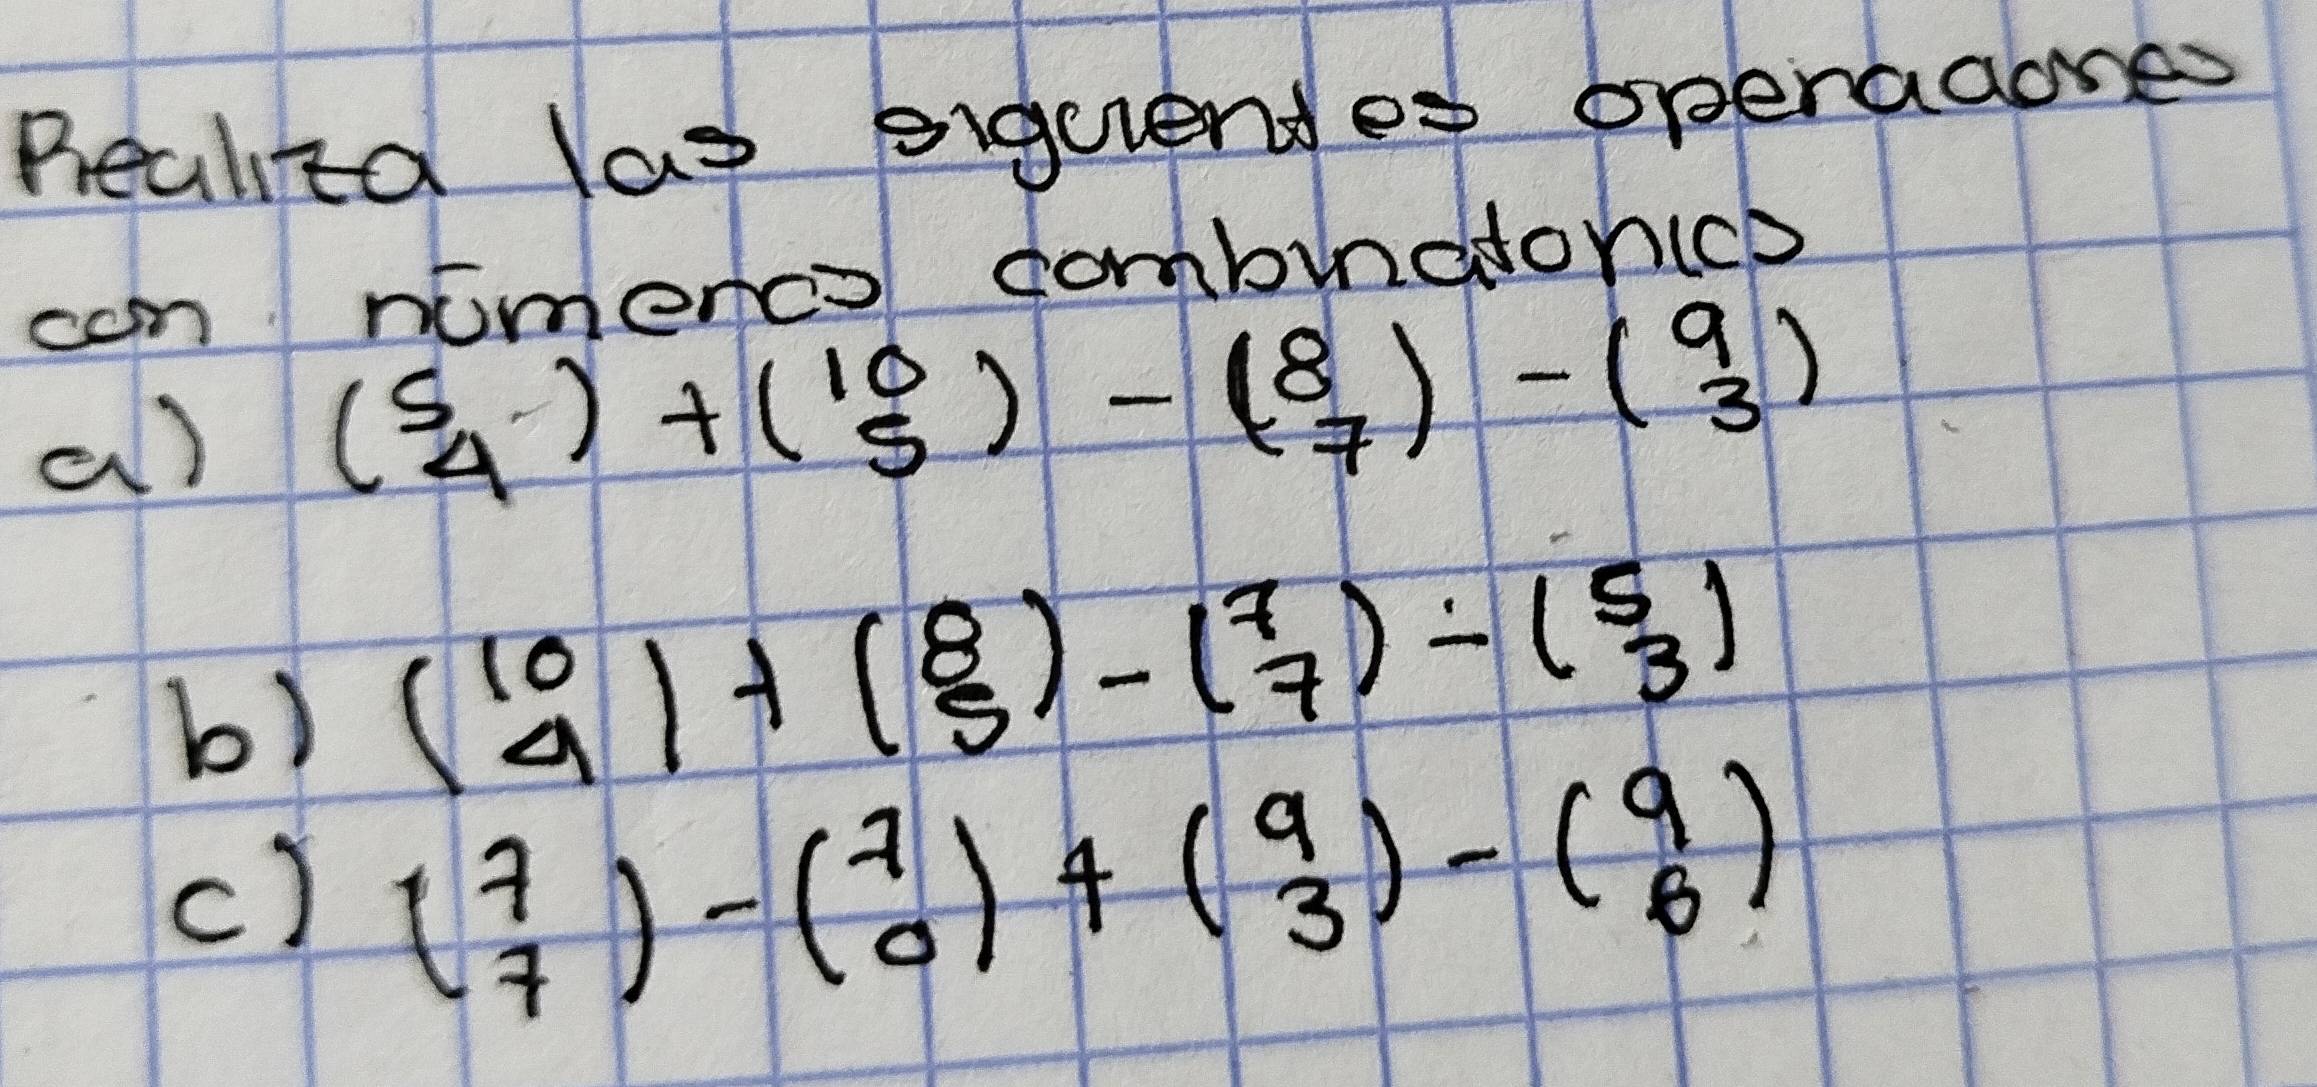 Realiza las siguientes operaciones
con números combinatorios
a) (5 4) + (10 5) - (8 7) - (9 3)
b) (10 4) + (8 5) - (7 7) - (5 3)
c) (7 7) - (7 0) + (9 3) - (9 6)